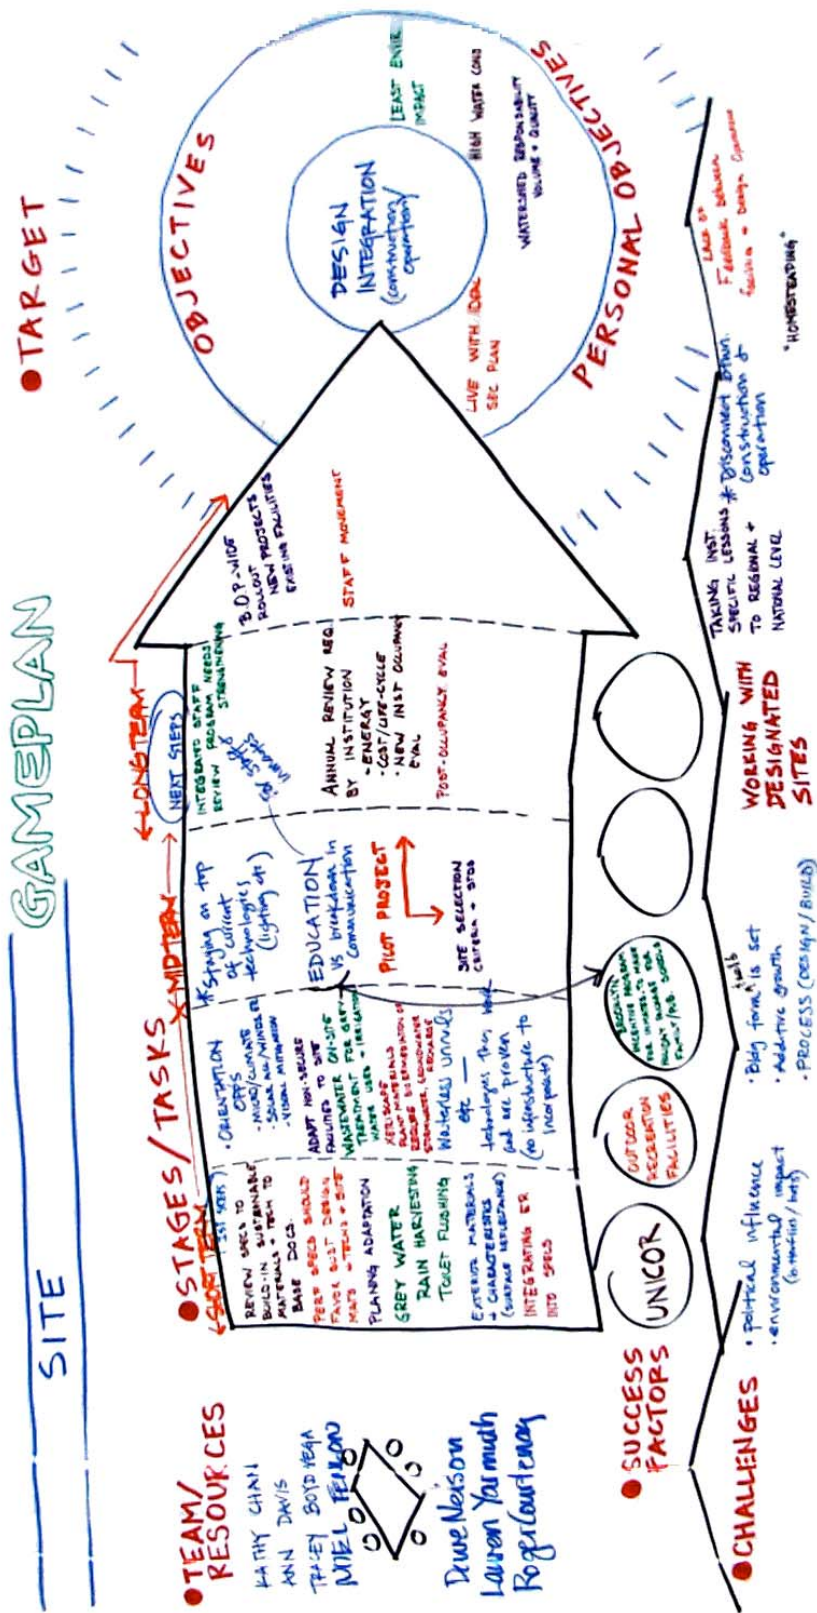 SITE
GAMEPLAN
● TEAM/
RESOURCES
KATHY CHAN
ANN DAVIS
TRACEY BOYD VEGA
Lauren Yarmuth
Roger Courtenay
● STAGES/TASKS
SHORT TERM
MIDTERM
LONGTERM
REVIEW SPECS TO
BUILD-IN SUSTAINABLE
MATERIALS + TECH TO
BASE DOCS.
PERF SPECS SHOULD
FAVOR SUST DESIGN
MATS + TECHS + SITE
PLANNG ADAPTATION
GREY WATER
RAIN HARVESTING
TOILET FLUSHING
EXTERIOR MATERIALS
+ CHARACTERISTICS
(SURFACE REFLECTANCE)
INTEGRATING ER
INTO SPECS
• ORIENTATION
OPPS
- MICRO/CLIMATE
- VISUAL MITIGATION
ADAPT NON-SECURE
FACILITIES TO SITE
WASTEWATER ON-SITE
TREATMENT FOR GREY-
WATER USES + IRRIGATION
XERISCAPE
PLANT MATERIALS
STORMWATER, GROUNDWATER
RECHARGE
Waterless urinals
etc —
technologies they
and are proven
(no infrastructure to
incorporate)
* Staying on top
of current
technologies
(lighting etc)
EDUCATION
vs breakdown in
communication
PILOT PROJECT
SITE SELECTION
CRITERIA + STDS
NEXT STEPS
INTEGRATED STAFF
REVIEW PROGRAM NEEDS
STRENGTHENING
inmates
ANNUAL REVIEW REQ.
BY INSTITUTION
• ENERGY
• COST/LIFE-CYCLE
• NEW INST OCCUPANCY
EVAL
POST-OCCUPANCY EVAL
B.O.P-WIDE
ROLLOUT PROJECTS
NEW PROJECTS
EXISTING FACILITIES
STAFF MOVEMENT
● TARGET
OBJECTIVES
DESIGN
INTEGRATION
(construction/
operation)
LEAST ENVIR
IMPACT
HIGH WATER CONS
WATERSHED RESPONSABILITY
VOLUME + QUALITY
LIVE WITH IDEAL
SEC PLAN
PERSONAL OBJECTIVES
● SUCCESS
FACTORS
UNICOR
OUTDOOR
RECREATION
FACILITIES
INCENTIVE PROGRAM
● CHALLENGES
• Political influence
• environmental impact
• Bldg form is set
tools
• Additive growth
• PROCESS (DESIGN/BUILD)
WORKING WITH
DESIGNATED
SITES
TAKING INST.
SPECIFIC LESSONS
TO REGIONAL +
NATIONAL LEVEL
* Disconnect btwn.
construction &
operation
LACK OF
Feedback between
facilities + Design
"HOMESTEADING"